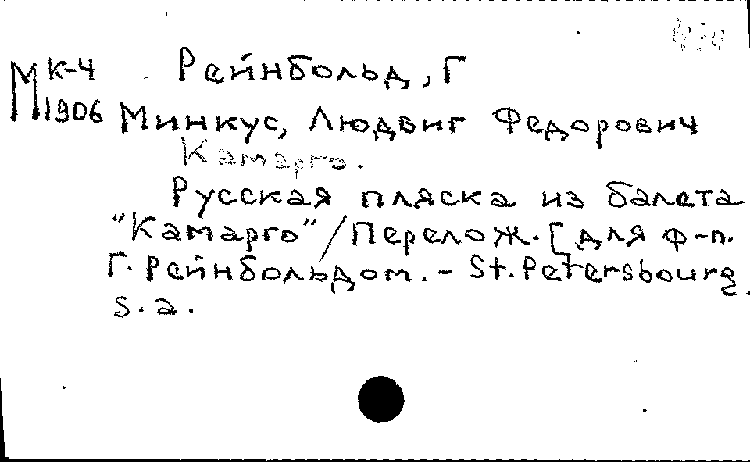 М К-4 Рейнбольд, Г
1906 Минкус, Людвиг Федорович
Камарго.
Русская пляска из балета
"Камарго"/Перелож. [для ф-п.
Г. Рейнбольдом. - St. Petersbourg.
S. a.